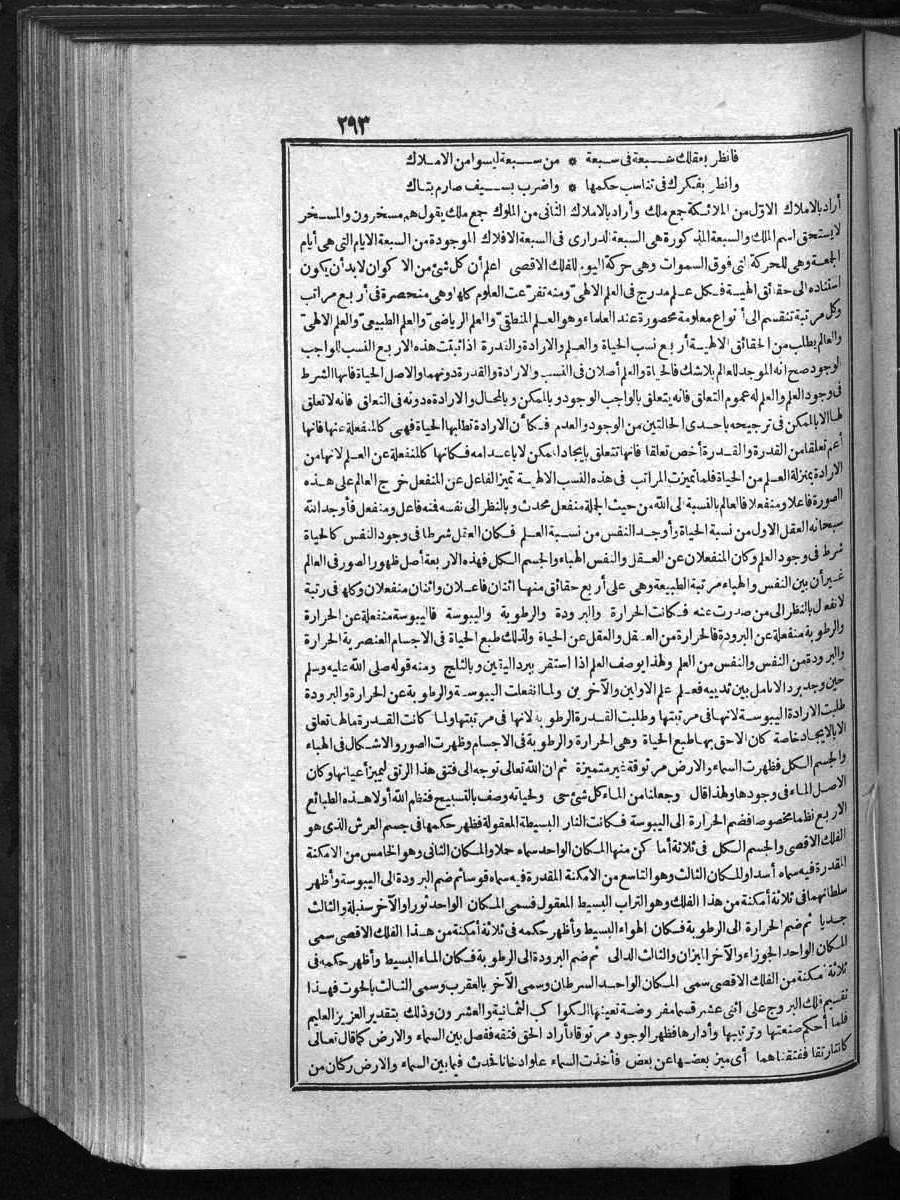 ٢٩٣
فانظر بعقلك سبعة فى سبعة * من سبعة ليسوا من الاملاك
وانظر بفكرك فى تناسب حكمها * واضرب بسيف صارم بتاك
أراد بالاملاك الاول من الملائكة جمع ملك وأراد بالاملاك الثانى من الملوك جمع ملك يقول هم مسخرون والمسخر
لا يستحق اسم الملك والسبعة المذكورة هى السبعة الدرارى فى السبعة الافلاك الموجودة من السبعة الايام التى هى أيام
الجمعة وهى للحركة التى فوق السموات وهى حركة اليوم للفلك الاقصى اعلم أن كل شئ من الاكوان لابد أن يكون
استناده الى حقائق الهية فكل علم مدرج فى العلم الالهىّ ومنه تفرّعت العلوم كلها وهى منحصرة فى أربع مراتب
وكل مرتبة تنقسم الى أنواع معلومة محصورة عند العلماء وهو العلم المنطقىّ والعلم الرياضىّ والعلم الطبيعىّ والعلم الالهىّ
والعالم يطلب من الحقائق الالهية أربع نسب الحياة والعلم والارادة والقدرة اذا ثبتت هذه الاربع النسب للواجب
الوجود صح انه الموجد للعالم بلاشك فالحياة والعلم أصلان فى النسب والارادة والقدرة دونهما والاصل الحياة فانها الشرط
فى وجود العلم والعلم له عموم التعلق فانه يتعلق بالواجب الوجود وبالممكن وبالمحال والارادة دونه فى التعلق فانه لا تعلق
لها الا بالممكن فى ترجيحه باحدى الحالتين من الوجود والعدم فكأن الارادة تطلبها الحياة فهى كالمنفعلة عنها فانها
أعم تعلقا من القدرة والقدرة أخص تعلقا فانها تتعلق بايجاد الممكن لا باعدامه فكانها كالمنفعلة عن العلم لانها من
الارادة بمنزلة العلم من الحياة فلما تميزت المراتب فى هذه النسب الالهية تميز الفاعل عن المنفعل خرج العالم على هذه
الصورة فاعلا ومنفعلا فالعالم بالنسبة الى الله من حيث الجملة منفعل محدث وبالنظر الى نفسه فمنه فاعل ومنفعل فأوجد الله
سبحانه العقل الاول من نسبة الحياة وأوجد النفس من نسبة العلم فكان العقل شرطا فى وجود النفس كالحياة
شرط فى وجود العلم وكان المنفعلان عن العقل والنفس الهباء والجسم الكل فهذه الاربعة أصل ظهور الصور فى العالم
غير أن بين النفس والهباء مرتبة الطبيعة وهى على أربع حقائق منها اثنان فاعلان واثنان منفعلان وكلها فى رتبة
لانفعال بالنظر الى من صدرت عنه فكانت الحرارة والبرودة والرطوبة واليبوسة فاليبوسة منفعلة عن الحرارة
والرطوبة منفعلة عن البرودة فالحرارة من العقل والعقل عن الحياة ولذلك طبع الحياة فى الاجسام العنصرية الحرارة
والبرودة من النفس والنفس من العلم ولهذا يوصف العلم اذا استقر ببرد اليقين وبالثلج ومنه قوله صلى الله عليه وسلم
حين وجد برد الانامل بين ثدييه فعلم علم الاولين والآخرين ولما انفعلت اليبوسة والرطوبة عن الحرارة والبرودة
طلبت الارادة اليبوسة لانها فى مرتبتها وطلبت القدرة الرطوبة لانها فى مرتبتها ولما كانت القدرة مالها تعلق
الا بالايجاد خاصة كان الاحق بها طبع الحياة وهى الحرارة والرطوبة فى الاجسام وظهرت الصور والاشكال فى الهباء
والجسم الكل فظهرت السماء والارض مرتوقة غير متميزة ثم ان الله تعالى توجه الى فتق هذا الرتق ليميز أعيانها وكان
الاصل الماء فى وجودها ولهذا قال وجعلنا من الماء كل شئ حى ولحياته وصف بالتسبيح فنظم الله أولا هذه الطبائع
الاربع نظما مخصوصا فضم الحرارة الى اليبوسة فكانت النار البسيطة المعقولة فظهر حكمها فى جسم العرش الذى هو
الفلك الاقصى والجسم الكل فى ثلاثة أماكن منها المكان الواحد سماه حملا والمكان الثانى وهو الخامس من الامكنة
المقدرة فيه سماه أسدا والمكان الثالث وهو التاسع من الامكنة المقدرة فيه سماه قوسا ثم ضم البرودة الى اليبوسة وأظهر
سلطانهما فى ثلاثة أمكنة من هذا الفلك وهو التراب البسيط المعقول فسمى المكان الواحد ثورا والآخر سنبلة والثالث
جديا ثم ضم الحرارة الى الرطوبة فكان الهواء البسيط وأظهر حكمه فى ثلاثة أمكنة من هذا الفلك الاقصى سمى
المكان الواحد الجوزاء والآخر الميزان والثالث الدالى ثم ضم البرودة الى الرطوبة فكان الماء البسيط وأظهر حكمه فى
ثلاثة أمكنة من الفلك الاقصى سمى المكان الواحد السرطان وسمى الآخر بالعقرب وسمى الثالث بالحوت فهذا
تقسيم فلك البروج على اثنى عشر قسما مفروضة تعينها الكواكب الثمانية والعشرون وذلك بتقدير العزيز العليم
فلما أحكم صنعتها وترتيبها وأدارها فظهر الوجود مرتوقا فأراد الحق فتقه ففصل بين السماء والارض كما قال تعالى
كانتا رتقا ففتقناهما أى ميز بعضها عن بعض فأخذت السماء علوا دخانا فحدث فيما بين السماء والارض ركان من